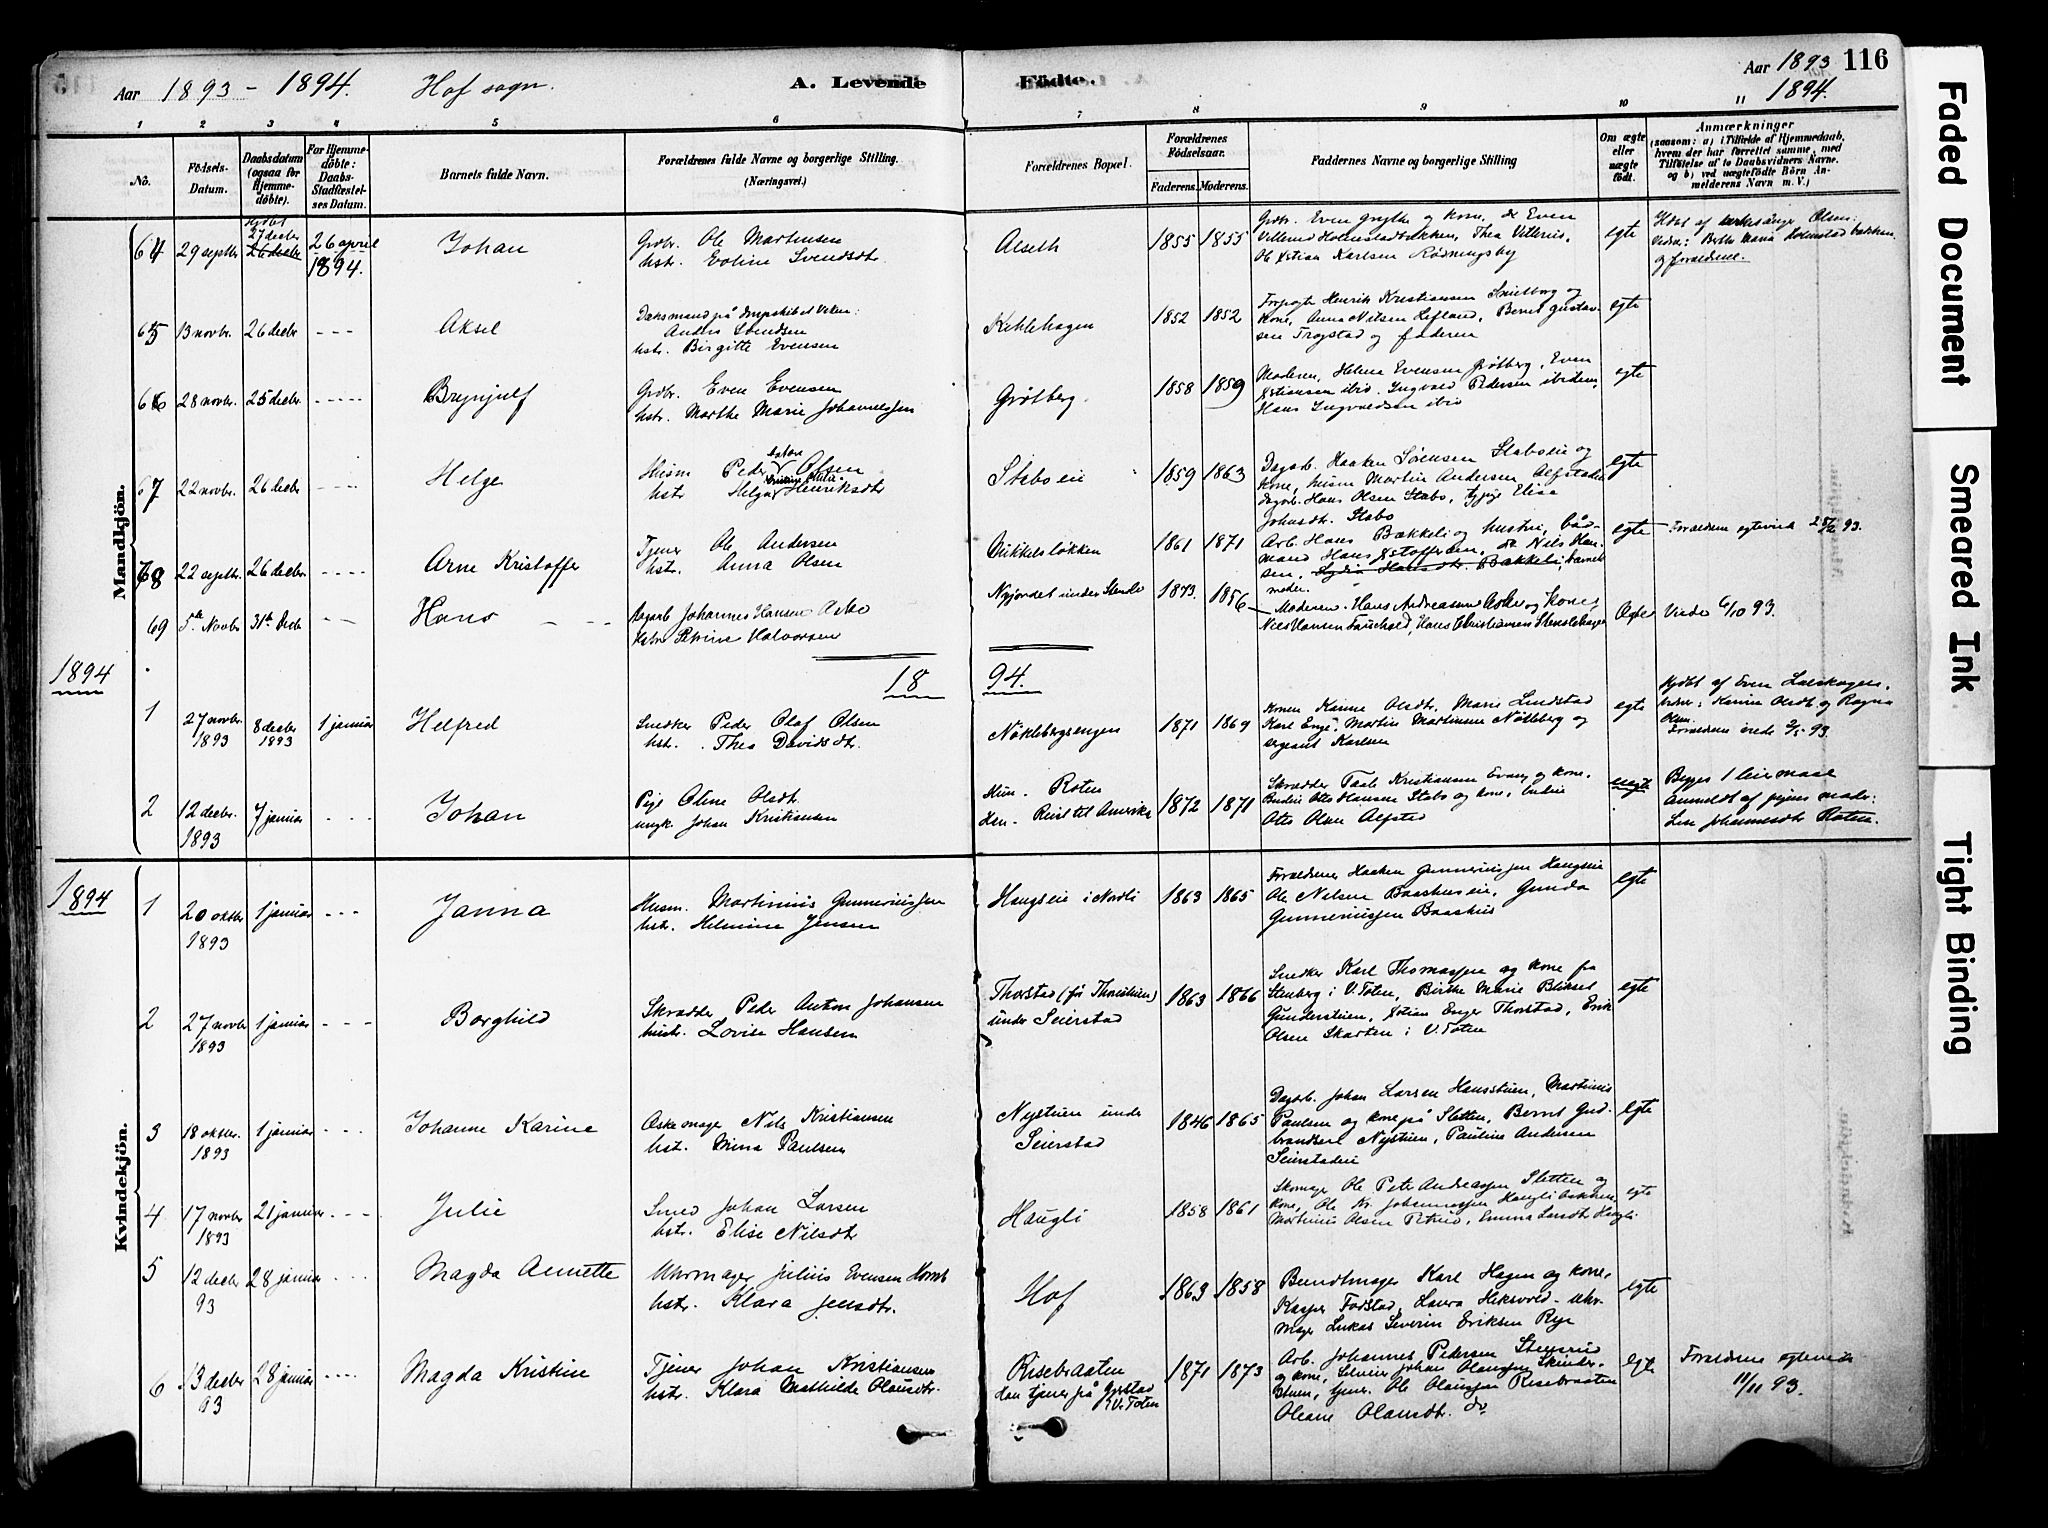 Aar 1893 - 1894. Hof sogn. A. Levende Födte. Aar 1893 116
1894.
1 2 3 4 5 6 7 8 9 10 11
No. Födsels-Datum. Daabsdatum (ogsaa for Hjemmedöbte). For Hjemmedöbte: Daabs-Stadfæstelses Datum. Barnets fulde Navn. Forældrenes fulde Navne og borgerlige Stilling. (Næringsvei.) Forældrenes Bopæl. Forældrenes Födselsaar. Faderens. Moderens. Faddernes Navne og borgerlige Stilling Om ægte eller uægte födt. Anmærkninger (saasom: a) i Tilfælde af Hjemmedaab, hvem der har forrettet samme, med Tilföielse af to Daabsvidners Navne, og b) ved uægtefödte Börn Anmelderens Navn m. V.)
Mandkjön.
64 29 septbr 27 decbr 26 april 1894. Johan
Grdbr. Ole Martinsen
hstr. Eveline Svendsdtr.
Alseth 1855 1855
Grdbr. Even Grythe og kone, dr Even
Villerud Holmstadbakken, Thea Villerud,
Ole Kstian Karlsen Rødningsby
egte
Hdbt af kirkesanger Olsen:
Vidner: Berthe Maria Holmstadbakken
og forældrene.
65 13 novbr. 26 decbr. - - - Aksel
Anders Svendsen
hstr. Birgitte Evensen
1852 1852
Kristiansen
kone, Anna Nilsen Lefland, Bernt Gustav-
sen Trogstad og faderen
egte
66 28 novbr. 25 decbr. - - - - - Brynjulf
Grdbr. Even Evensen
hstr. Marthe Marie Johannessen
Grøtberg 1858 1859
Moderen, Helene Evensen Grøtberg, Even
Kstiansen ibid. Ingvald Pedersen ibidem,
Hans Ingvaldsen ibid
egte
67 22 novbr. 26 decbr - - - - Helge
Husm Peder Anton Olsen
hstr Helga Henriksdtr
Staboeie 1859 1863
Dagarb. Haaken Sørensen Staboeie og
kone, husm Martin Andersen Alfstadeie
dagarb. Hans Olsen Stabo, pige Elisa
Johnsdtr. Stabo
egte
68 22 septbr. 26 decbr - - - - Arne Kristoffer
Tjener Ole Andersen
hstr. Anna Olsen
Mikkelsløkken 1861 1871
Arb. Hans Bækkeli og hustru, båd-
mand Hans Kstoffersen, dr Nils Han-
sen, barnets
moder.
egte
Forældrene egteviet 93.
69 5te Novbr 31te Decbr - - Hans - - -
Dagarb Johannes Hansen Asbo
Hstr Petrine Halvorsen
Nyjordet under Stenslie 1873. 1856
Moderen. Hans Andreassen Asbo og kone,
Niels Hansen Fauchald, Hans Christiansen Stenslehagen
Ægte Viede 6/10 93.
1894
18 94.
1 27 novbr. 1893 8 decbr 1893 1 januar Helfred
Snedker Peder Olaf Olsen
hst. Thea Davidsdtr.
Nøklebergsengen 1871 1869
Konen Karine Olsdtr. Marie Lindstad
Karl Enge, Martin Martinsen Nøkleberg og
sergeant Karlsen
egte
Hjdbt af Even Lølskogen.
Vidner: Karine Olsdtr og Ragna
Olsen.
Forældrene viede 93.
2 12 decbr. 1893 7 januar - - - Johan
Pige Oline Olsdtr.
ungk Johan Kristiansen
Hun - Roten
Han - Reist til Amerika
1872 1871
Skrædder Paale Kristiansen Evang og kone.
Budeie Otto Hansen Stabo og kone,
Otto Olsen Alfsted
uegte
Begges 1 leiermaal
Anmeldt af pigens moder:
Lise Johannesdtr Roten.
Kvindekjön.
1894
1 20 oktbr 1893 1 januar - - - Janna
Husm. Martinius Gunneriussen
hstr. Helmine Jensen
Haugseie i Nordli 1863 1865
Forældrene Haaken Gunneriussen Haugseie
Ole Nilsen Baashuseie, Gunda
Gunneriussen Baashus
egte
2 27 novbr 1893 1 januar - - - Borghild
Skrædder Peder Anton Johansen
hustr. Lovise Hansen
Thorstad (før Thorstuen)
under Seierstad
1863 1866
Snedker Karl Thomassen og kone fra
Stenberg i V. Toten, Birthe Marie Bliksel
Gunderstuen, Kstian Enger Thorstad, Erik
Olsen Skarten i V. Toten
egte
3 18 oktbr. 1893 1 januar - - - Johanne Karine
Askemager Nils Kristiansen
hst. Mina Paulsen
Nystuen under
Seierstad
1846 1865
Dagarb. Johan Larsen Hansstuen, Martinus
Paulsen og kone på Sletten, Bernt Gud-
brandsen Nystuen, Pauline Andersen
Seierstadeie
egte
4 17 novbr 1893 21 januar - - - Julie
Smed Johan Larsen
hst. Elise Nilsdtr
Haugli 1858 1861
Skomager Ole Peter Andreassen Sletten og
kone, Ole Kr. Johannessen Haugli
Martinius Olsen Petrud, Emma Larsdtr Haugli
egte
5 12 decbr 93 28 januar - - - Magda Annette
Uhrmager Julius Evensen
hstr. Klara Jensdtr.
Hof 1863 1858
Bundtmager Karl Hagen og kone,
Kasper Forstad, Laura Heksvold - uhr-
mager Lukas Severin Eriksen Rye
egte
6 13 decbr 93 28 januar - - - - Magda Kristine
Tjener Johan Kristiansen
hstr. Klara Mathilde Olausdtr.
Risebraaten
han tjener på Gjerstad
i V. Toten
1871 1873
Arb. Johannes Pedersen Stensrud
og kone, Johan Olaussen Skinder-
stuen, tjener Ole Olaussen Risebraaten
Oleane Olausdtr. do
egte
Forældrene egteviede
11/11 93.
Faded Document
Smeared Ink
Tight Binding